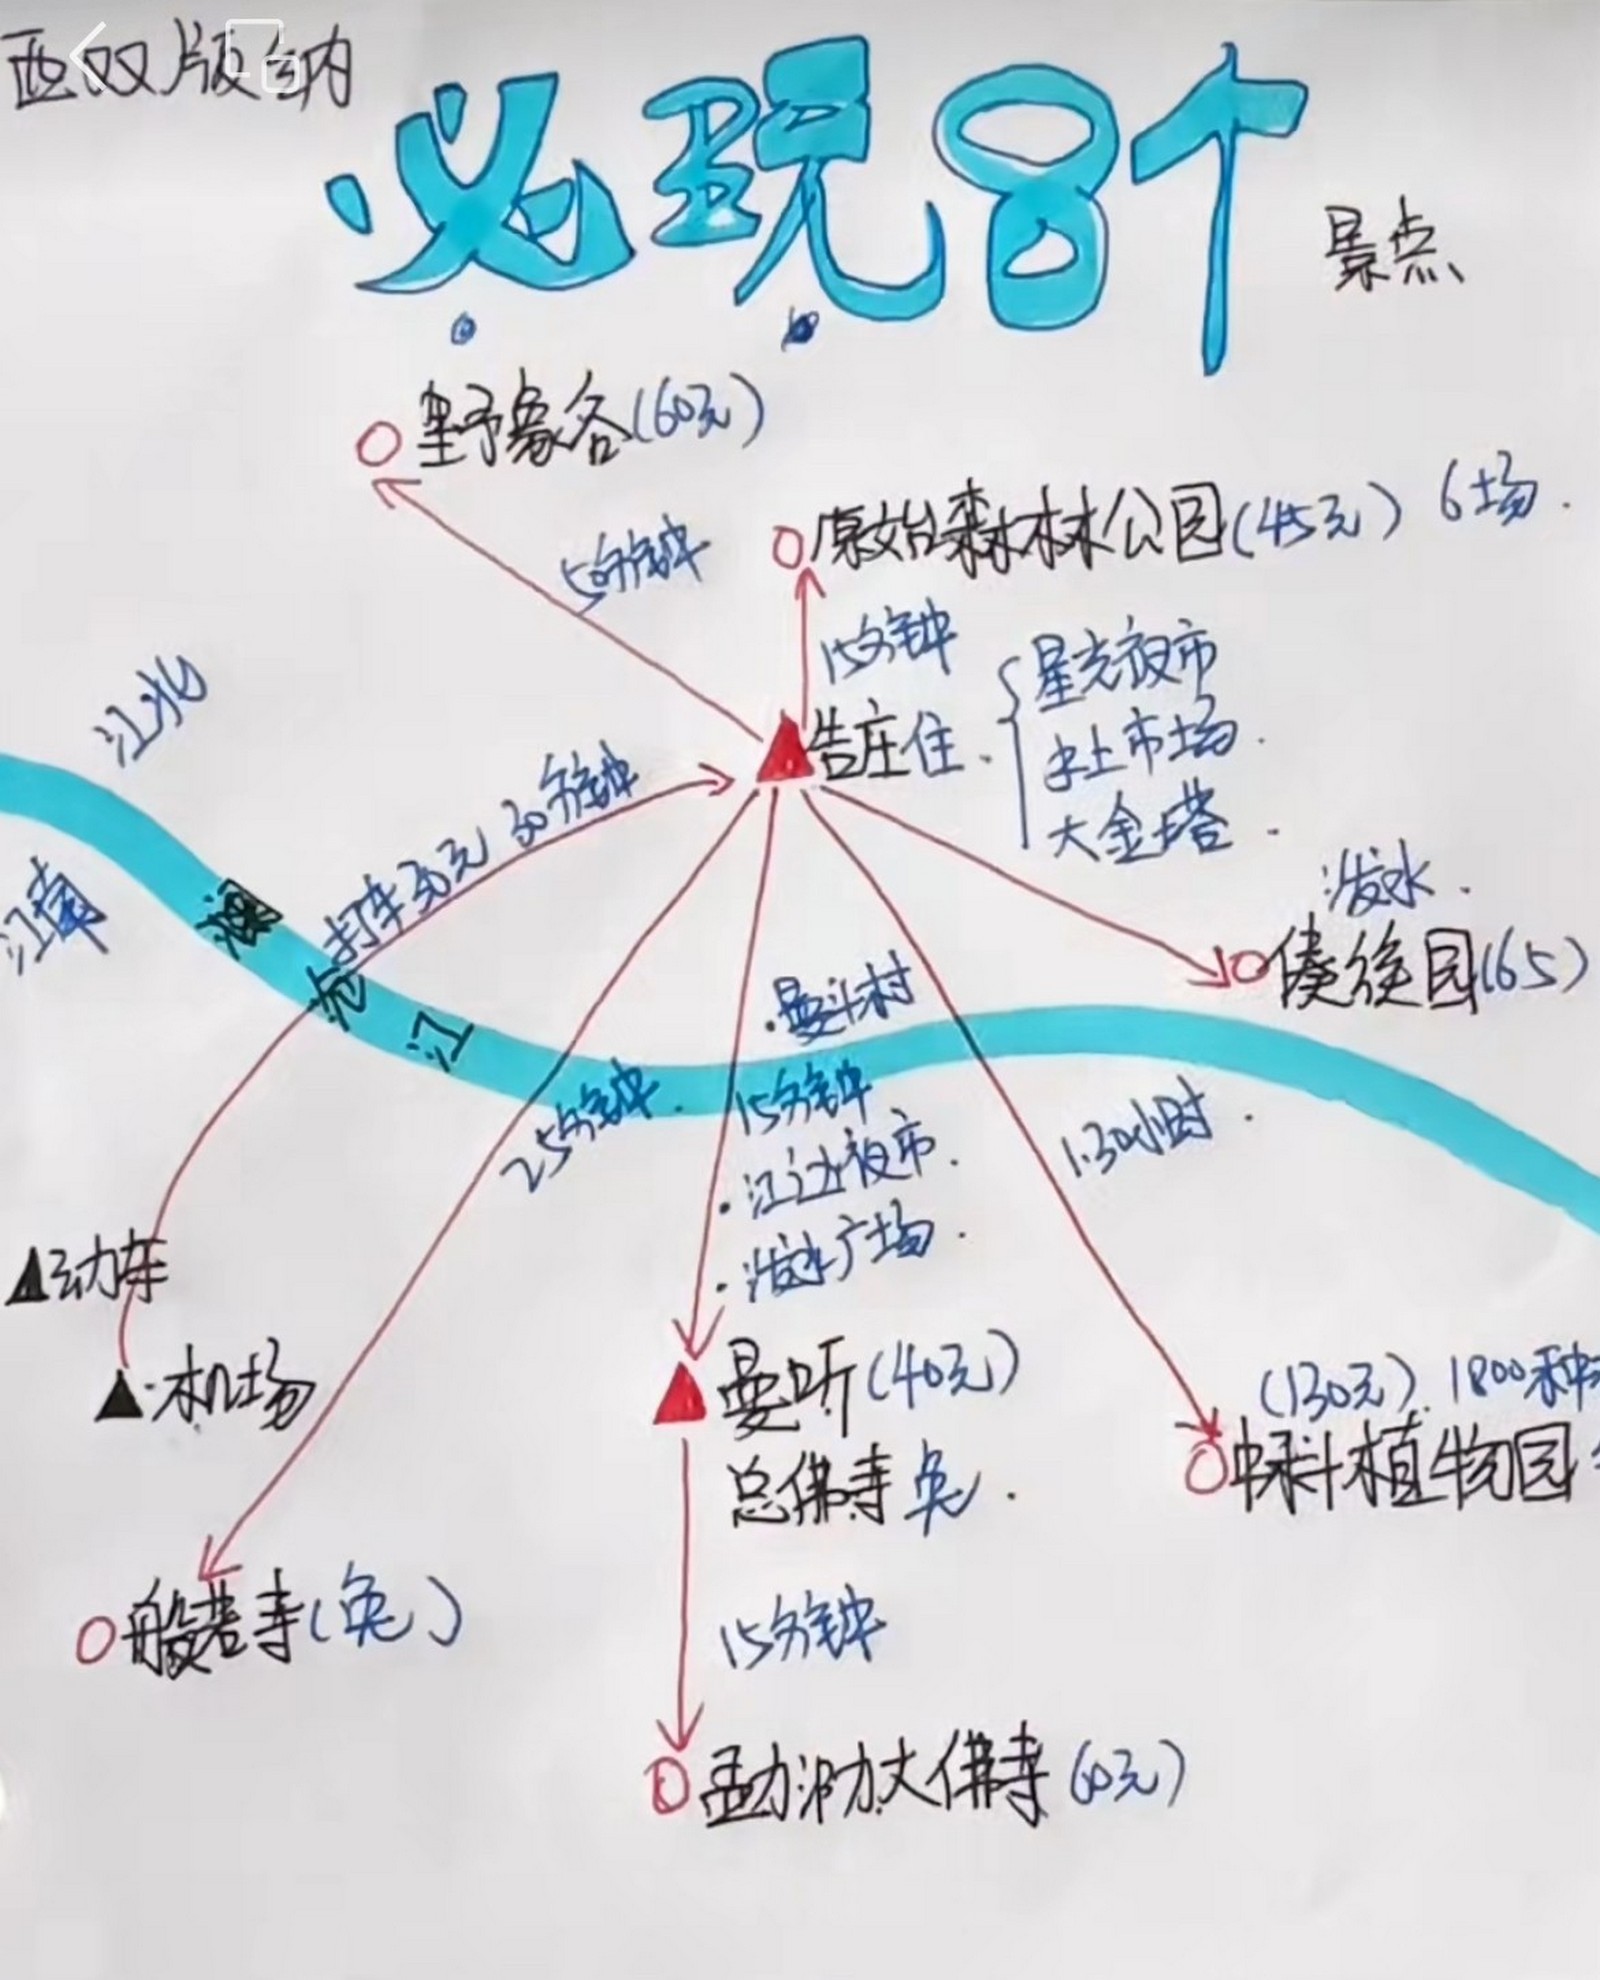 西双版纳
必玩8个
景点
野象谷(60元)
50分钟
原始森林公园(45元) 6场.
15分钟
江北
告庄住.
星光夜市
水上市场.
大金塔.
打车30元 30分钟
江南
澜沧江
泼水.
傣族园(65)
.曼斗村
25分钟.
15分钟
1.30小时.
.江边夜市.
.泼水广场.
动车
机场
曼听(40元)
总佛寺 免.
(130元).1800种
中科植物园
般若寺(免)
15分钟
勐泐大佛寺(60元)